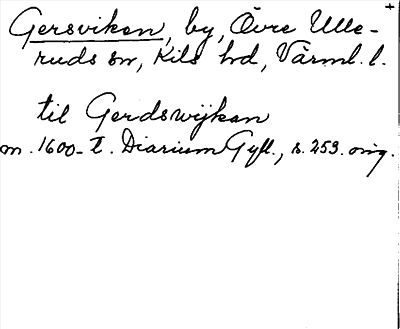 Gersviken, by, Övre Ulle-
ruds sn, Kils hd, Värml. l.
til Gerdswijkan
m. 1600-t. Diarium Gyll., s. 253. orig.